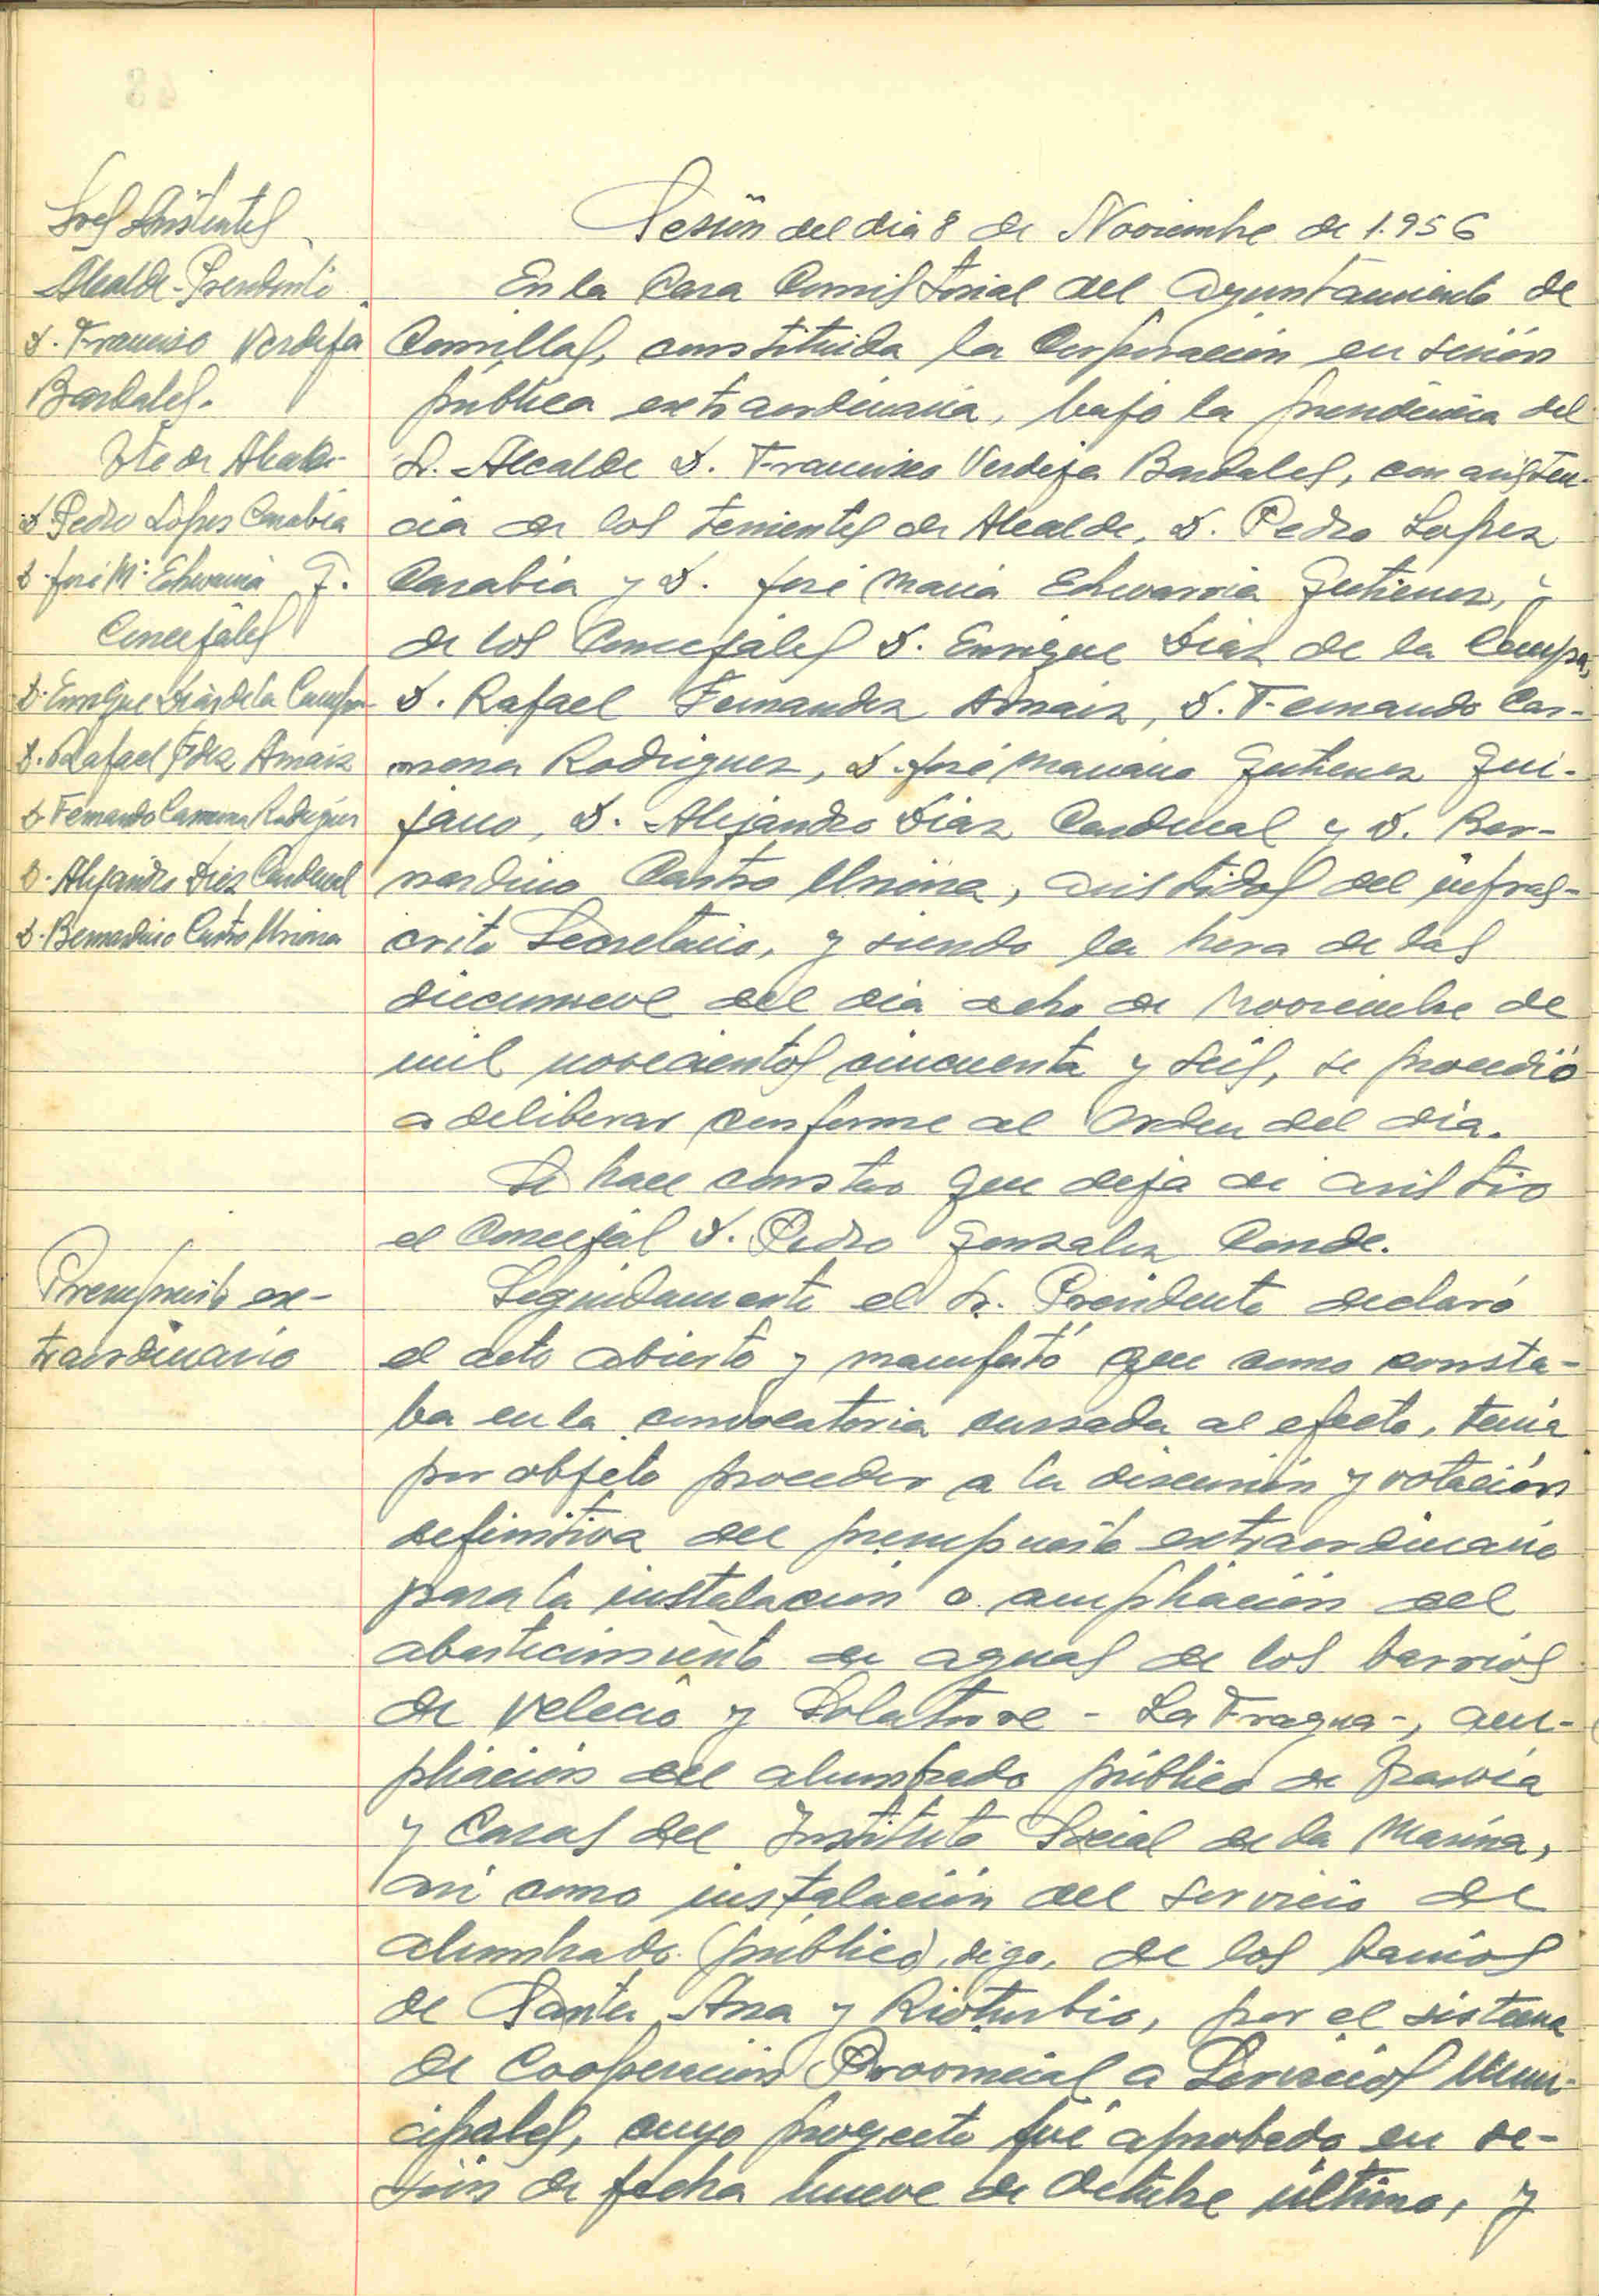 Sres Asistentes
Alcalde-Presidente
D. Francisco Verdeja
Bardales.
Tte de Alcalde
D Pedro López Carabia
D. José Mª Echevarria G.
Concejáles
D. Enrique Diáz de la Campa
D. Rafael Fdez Arnaiz
D Fernando Carmona Rodriguez
D. Alejandro Diez Cardenal
D. Bernardino Castro Uriona
Presupuesto ex-
traordinario
Sesión del dia 8 de Noviembre de 1.956
En la Casa Consistorial del Ayuntamiento de
Comillas, constituida la Corporación en sesión
pública extraordinaria, bajo la presidencia del
Sr. Alcalde D. Francisco Verdeja Bardales, con asisten-
cia de los tenientes de Alcalde, D. Pedro Lopez
Carabia y D. José Maria Echevarria Gutierrez, y
de los Concejáles D. Enrique Diaz de la Campa,
D. Rafael Fernandez Arnaiz, D. Fernando Car-
mona Rodriguez, D. José Mariano Gutierrez Gui-
jano, D. Alejandro Diaz Cardenal y D. Ber-
nardino Castro Uriona, asistidos del infras-
crito Secretario, y siendo la hora de las
diecinueve del dia ocho de Noviembre de
mil novecientos cincuenta y seis, se procedió
a deliberar conforme al Orden del dia.
Se hace constar que deja de asistir
el Concejál D. Pedro Gonzalez Conde.
Seguidamente el Sr. Presidente declaró
el acto abierto y manifestó que como consta-
ba en la convocatoria cursada al efecto, tenia
por objeto proceder a la discusión y votación
definitiva del presupuesto extraordinario
para la instalación o ampliación del
abastecimiento de aguas de los barrios
de Velecio y Solatorre - La Fragua -, am-
pliación del alumbrado público de
y Casas del Instituto Social de la Marina,
asi como instalación del servicio de
alumbrado (público), digo, de los barrios
de Santa Ana y Rioturbio, por el sistema
de Cooperación Provincial a Servicios Muni-
cipales, cuyo proyecto fué aprobado en se-
sión de fecha nueve de Octubre último, y